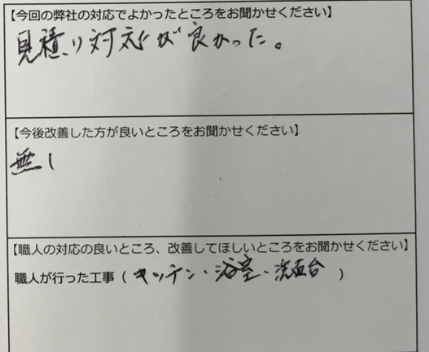 【今回の弊社の対応でよかったところをお聞かせください】
見積り対応が良かった。
【今後改善した方が良いところをお聞かせください】
無し
【職人の対応の良いところ、改善してほしいところをお聞かせください】
職人が行った工事（ キッチン・浴室・洗面台 ）